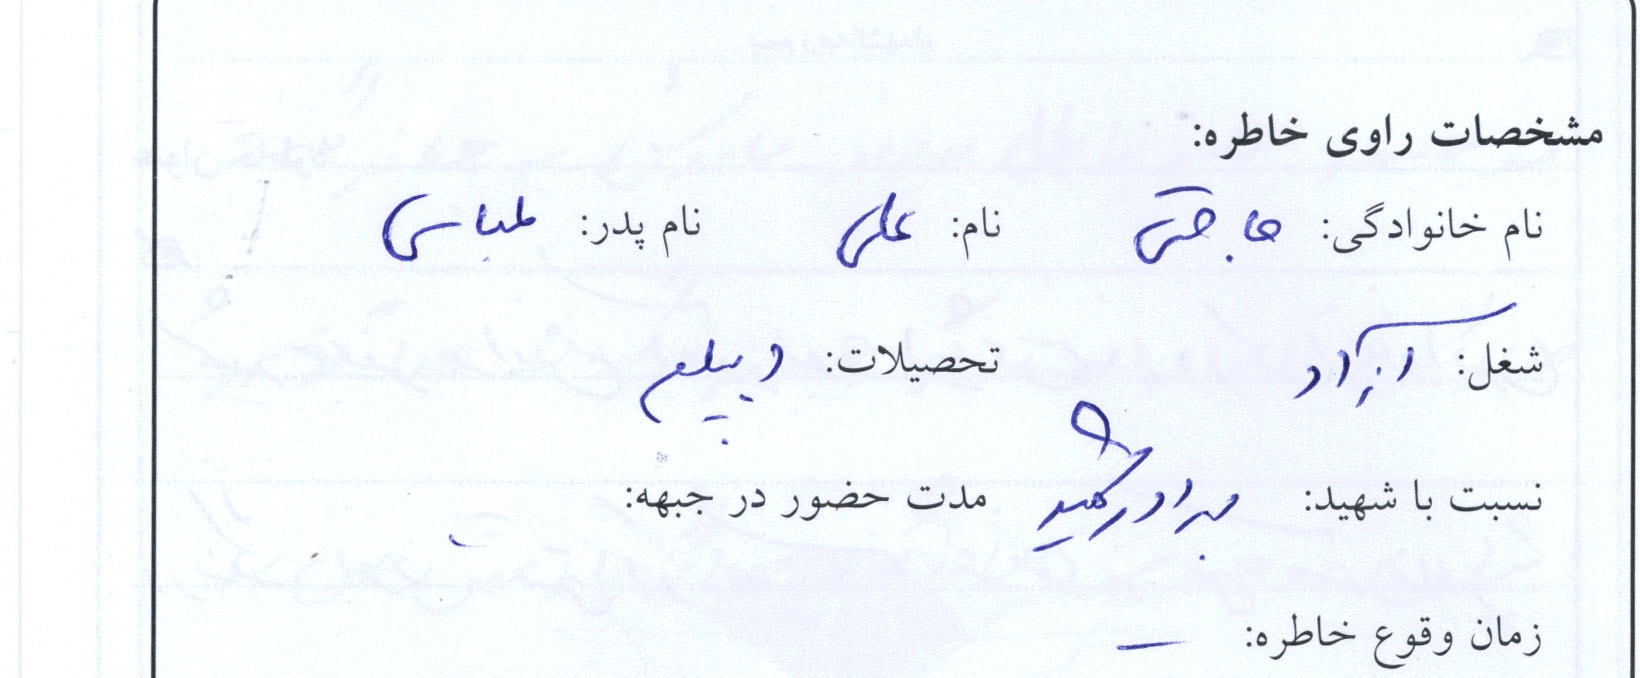 مشخصات راوی خاطره:
نام خانوادگی: حاجتی نام: علی نام پدر: عباس
شغل: آزاد تحصیلات: دیپلم
نسبت با شهید: برادر شهید مدت حضور در جبهه:
زمان وقوع خاطره: —